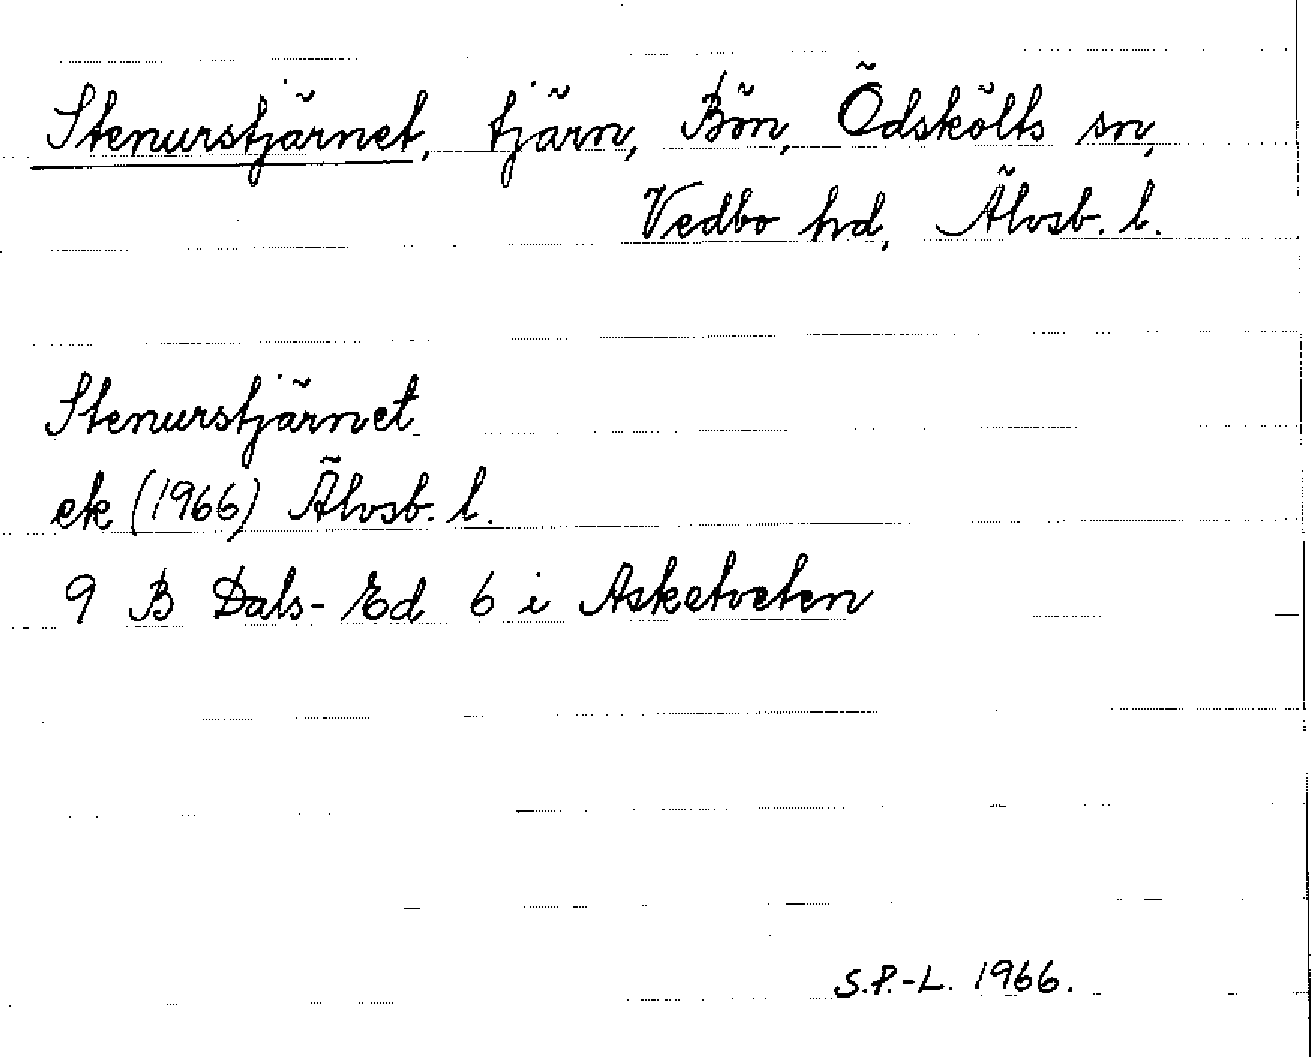 Stenurstjärnet, tjärn, Bön, Ödskölts sn,
Vedbo hd, Älvsb. l.
Stenurstjärnet
ek (1966) Älvsb. l.
9 B Dals-Ed 6 i Asketveten
S.P.-L. 1966.